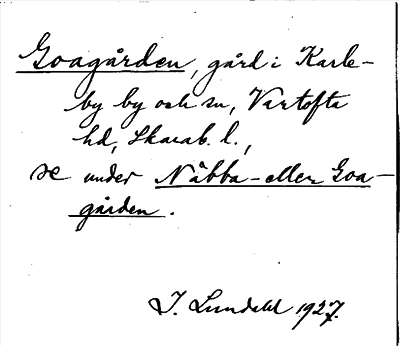 Goagården, gård i Karle-
by by och sn, Vartofta
hd, Skarab. l.,
se under Nåbba- eller Goa-
gården.
I. Lundahl 1927.